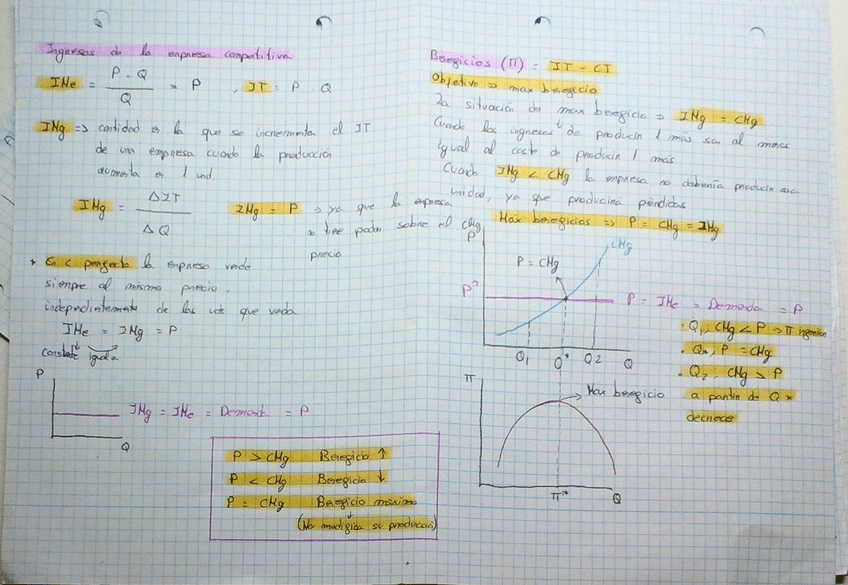 Ingresos de la empresa competitiva
IMe = P · Q / Q = P , IT = P Q
IMg => cantidad en la que se incrementa el IT
de una empresa cuando la producción
aumenta en 1 und
IMg = ΔIT / ΔQ
IMg = P => ya que la empresa
no tiene poder sobre el
precio
* En C perfecta la empresa vende
siempre al mismo precio,
independientemente de las uds que venda
IMe = IMg = P
constante igual a
P
IMg = IMe = Demanda = P
Q
P > CMg Beneficio ↑
P < CMg Beneficio ↓
P = CMg Beneficio máximo
(No modifica su producción)
Beneficios (π) = IT - CT
Objetivo => max beneficio
La situación de max beneficio => IMg = CMg
Cuando los ingresos de producir 1 más son al menos
igual al coste de producir 1 más
Cuando IMg < CMg la empresa no debería producir esa
unidad, ya que producirá pérdidas
Max beneficios => P = CMg = IMg
CMg
P
CMg
P = CMg
P*
P = IMe = Demanda = P
Q1 Q* Q2 Q
· Q1, CMg < P => π
· Q*, P = CMg
· Q2, CMg > P
a partir de Q*
decrece
π
Max beneficio
π* Q